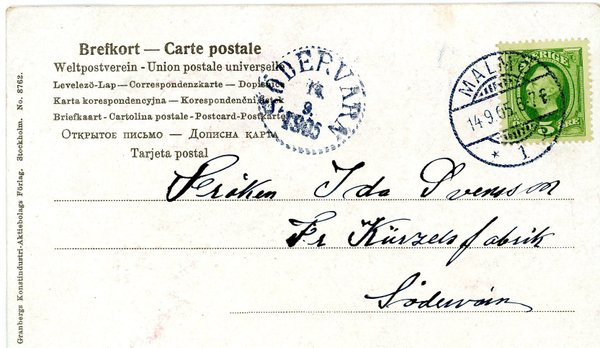 Brefkort — Carte postale
Weltpostverein - Union postale universelle
Levelező-Lap — Correspondenzkarte — Dopisnice
Karta korespondencyjna — Korespondenční lístek
Briefkaart - Cartolina postale - Postcard - Postkarte
Открытое письмо — Дописна карта
Tarjeta postal
SÖDERVÄRN
14
9
1905
MALMÖ
14.9.05
1
SVERIGE
5
Fröken Ida Svensson
Fr Kürzels fabrik
Södervärn
Granbergs Konstindustri-Aktiebolags Förlag. Stockholm. No. 8762.